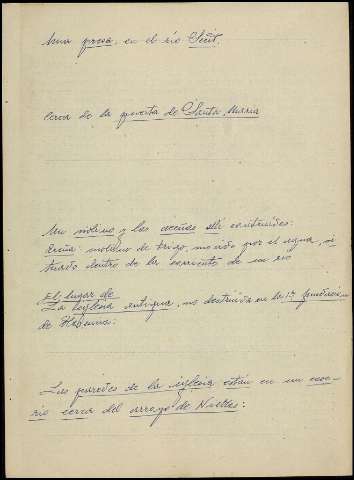 Una presa, en el río
Cerca de la puerta de Santa María
Un molino y las aceñas allí construidas:
molino de trigo, movido por el agua, si-
tuado dentro de la corriente de un río
El lugar de
La iglesia antigua, no destruida en la 1ª fundación
de
Las paredes de la iglesia están en un case-
río cerca del arroyo de